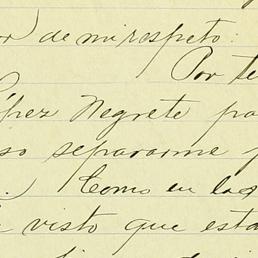 or) de mi respeto:
Por te
López Negrete pa
so separarme p
.) Como en las
visto que esta